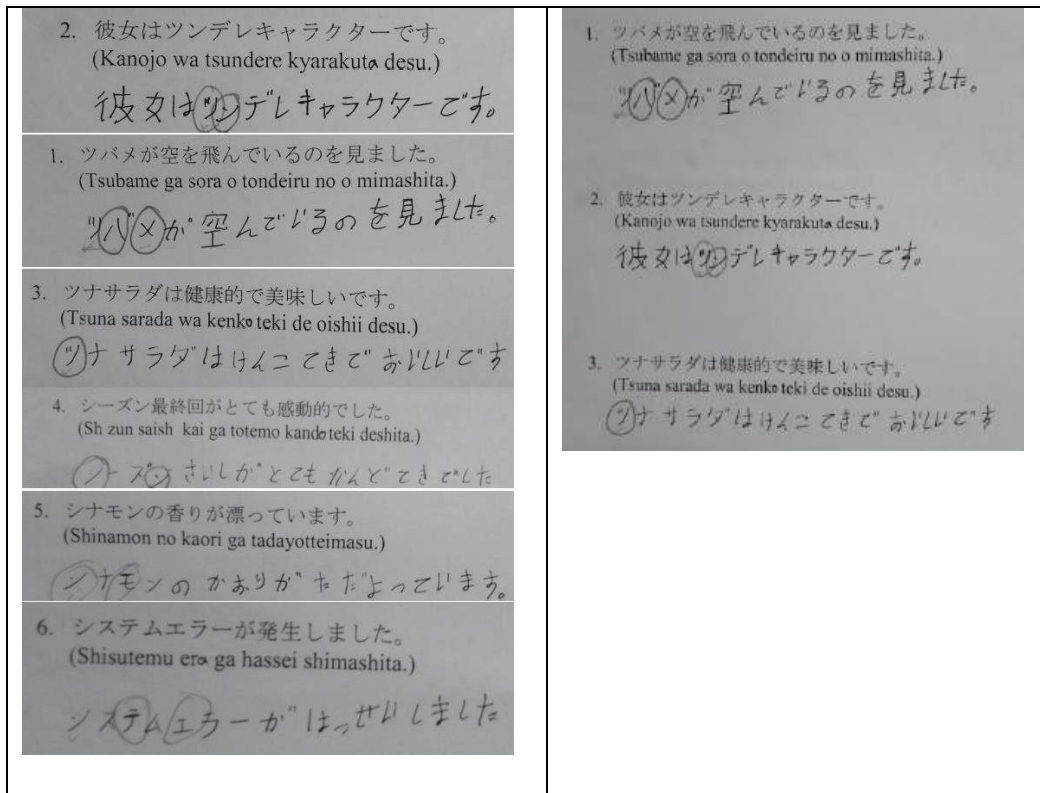 2. 彼女はツンデレキャラクターです。
(Kanojo wa tsundere kyarakuta desu.)
彼女はツンデレキャラクターです。
1. ツバメが空を飛んでいるのを見ました。
(Tsubame ga sora o tondeiru no o mimashita.)
ツバメが空んでいるのを見ました。
3. ツナサラダは健康的で美味しいです。
(Tsuna sarada wa kenko teki de oishii desu.)
ツナサラダはけんこてきでおいしいです
4. シーズン最終回がとても感動的でした。
(Sh zun saish kai ga totemo kando teki deshita.)
シーズンさいしがとてもかんどてきでした
5. シナモンの香りが漂っています。
(Shinamon no kaori ga tadayotteimasu.)
シナモンのかおりがただよっています。
6. システムエラーが発生しました。
(Shisutemu era ga hassei shimashita.)
システムエラーがはっせいしました
1. ツバメが空を飛んでいるのを見ました。
(Tsubame ga sora o tondeiru no o mimashita.)
ツバメが空んでいるのを見ました。
2. 彼女はツンデレキャラクターです。
(Kanojo wa tsundere kyarakuta desu.)
彼女はツンデレキャラクターです。
3. ツナサラダは健康的で美味しいです。
(Tsuna sarada wa kenko teki de oishii desu.)
ツナサラダはけんこてきでおいしいです